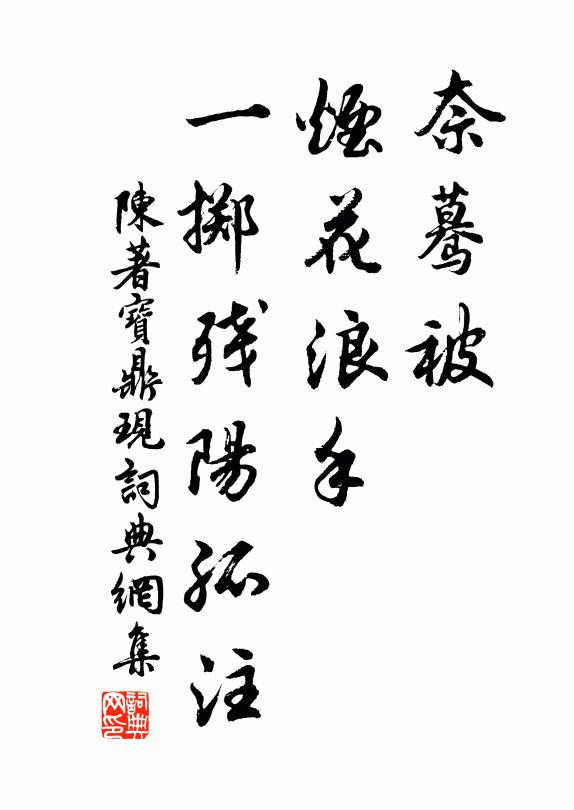 奈驀被
煙花浪手
一擲残陽孤注
陳著寶鼎現詞典網集
詞典网印